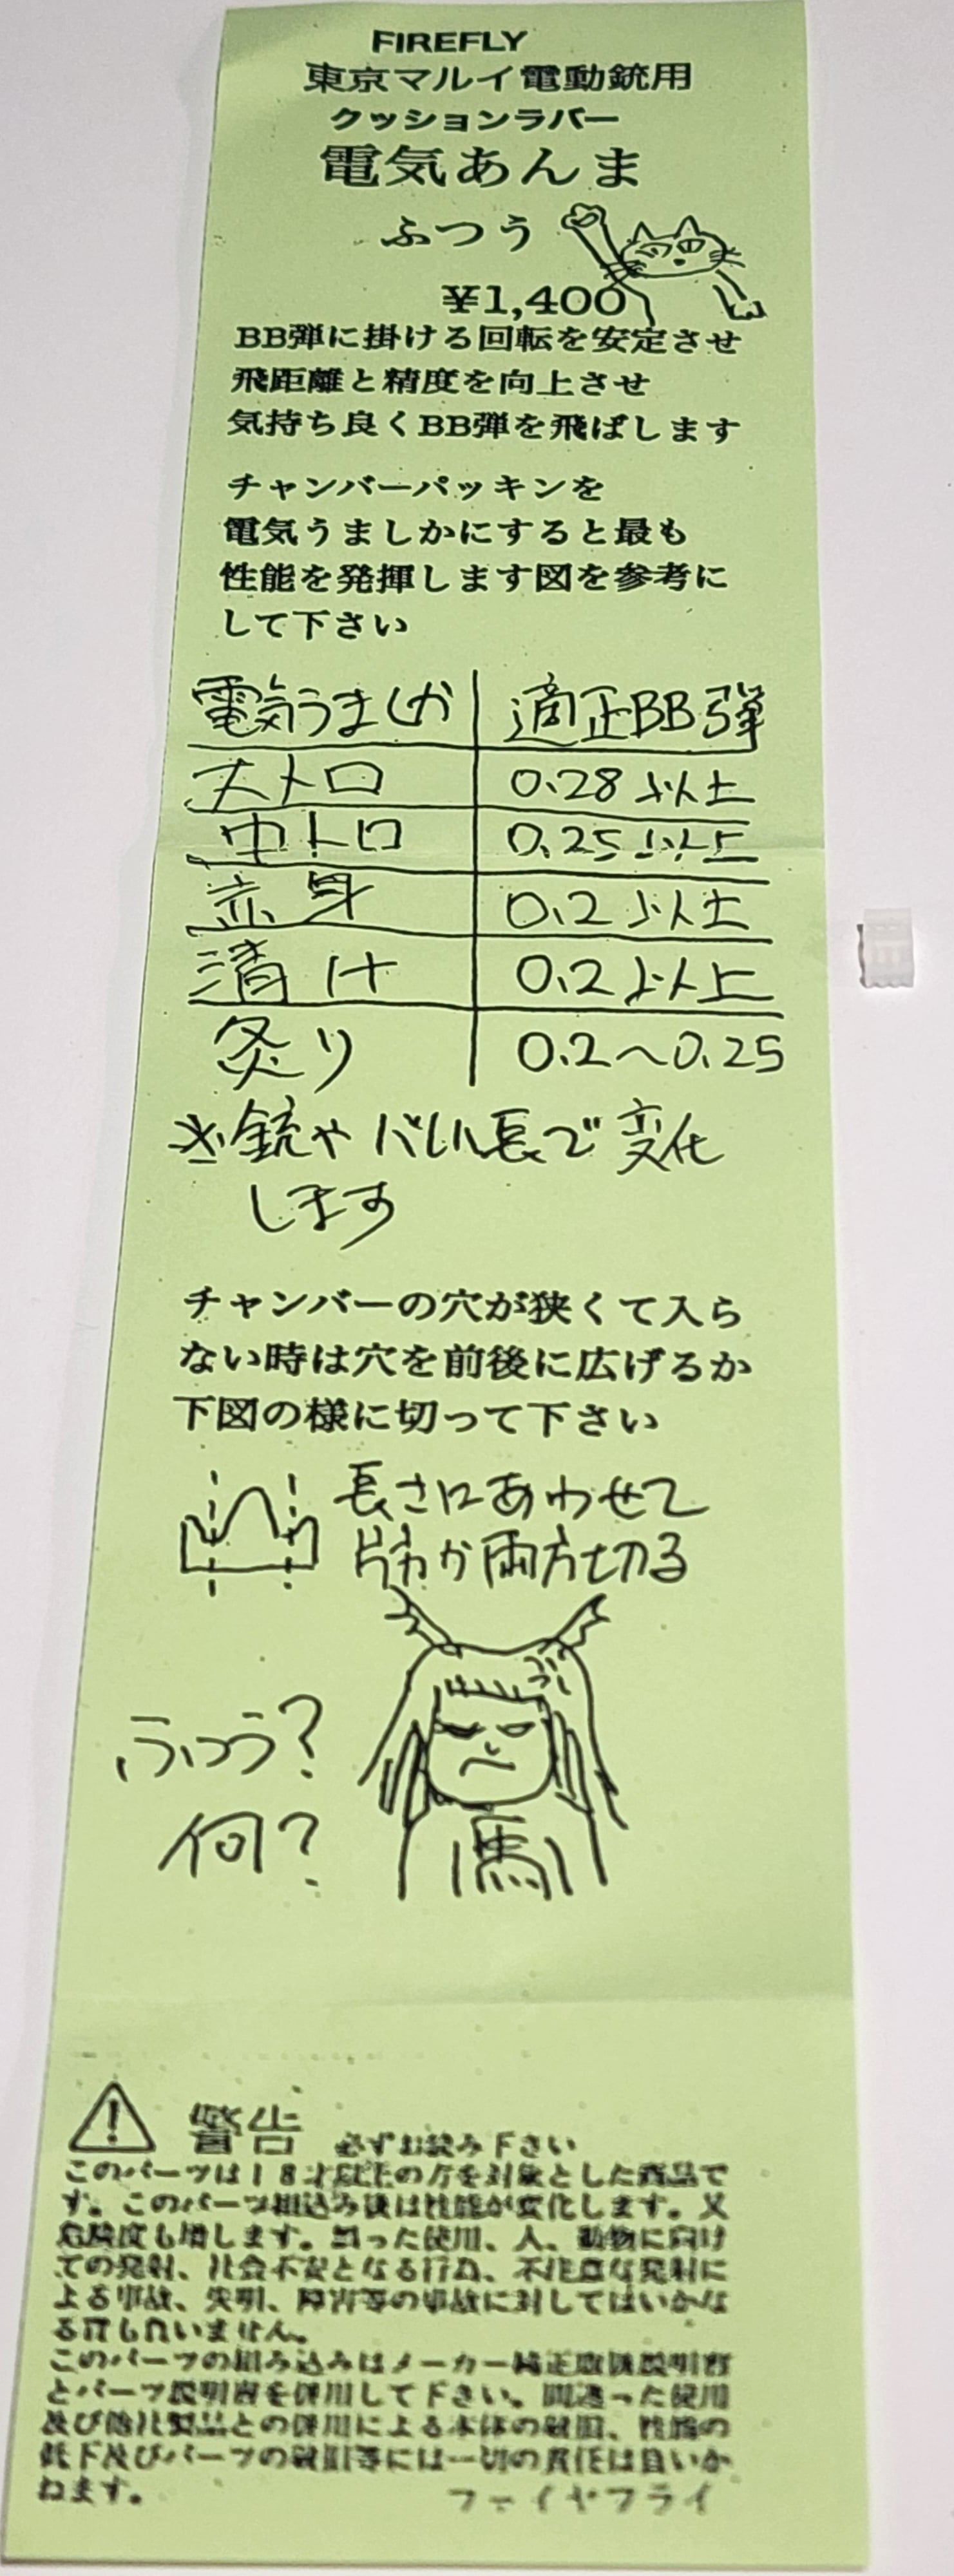 FIREFLY
東京マルイ電動銃用
クッションラバー
電気あんま
ふつう
¥1,400
BB弾に掛ける回転を安定させ
飛距離と精度を向上させ
気持ち良くBB弾を飛ばします
チャンバーパッキンを
電気うましかにすると最も
性能を発揮します図を参考に
して下さい
電気うましか 適正BB弾
大トロ 0.28以上
中トロ 0.25以上
赤身 0.2以上
漬け 0.2以上
炙り 0.2〜0.25
※銃やバレル長で変化
します
チャンバーの穴が狭くて入ら
ない時は穴を前後に広げるか
下図の様に切って下さい
長さにあわせて
片方か両方切る
ふつう?
何?
馬
警告 必ずお読み下さい
このパーツは18才以上の方を対象とした商品で
す。このパーツ組込み後は性能が変化します。又
危険度も増します。誤った使用、人、動物に向け
ての発射、社会不安となる行為、不注意な発射に
よる事故、失明、障害等の事故に対してはいかな
る責も負いません。
このパーツの組み込みはメーカー純正取扱説明書
とパーツ説明書を併用して下さい。間違った使用
及び他社製品との併用による本体の破損、性能の
低下及びパーツの破損等には一切の責任は負いか
ねます。
ファイヤフライ